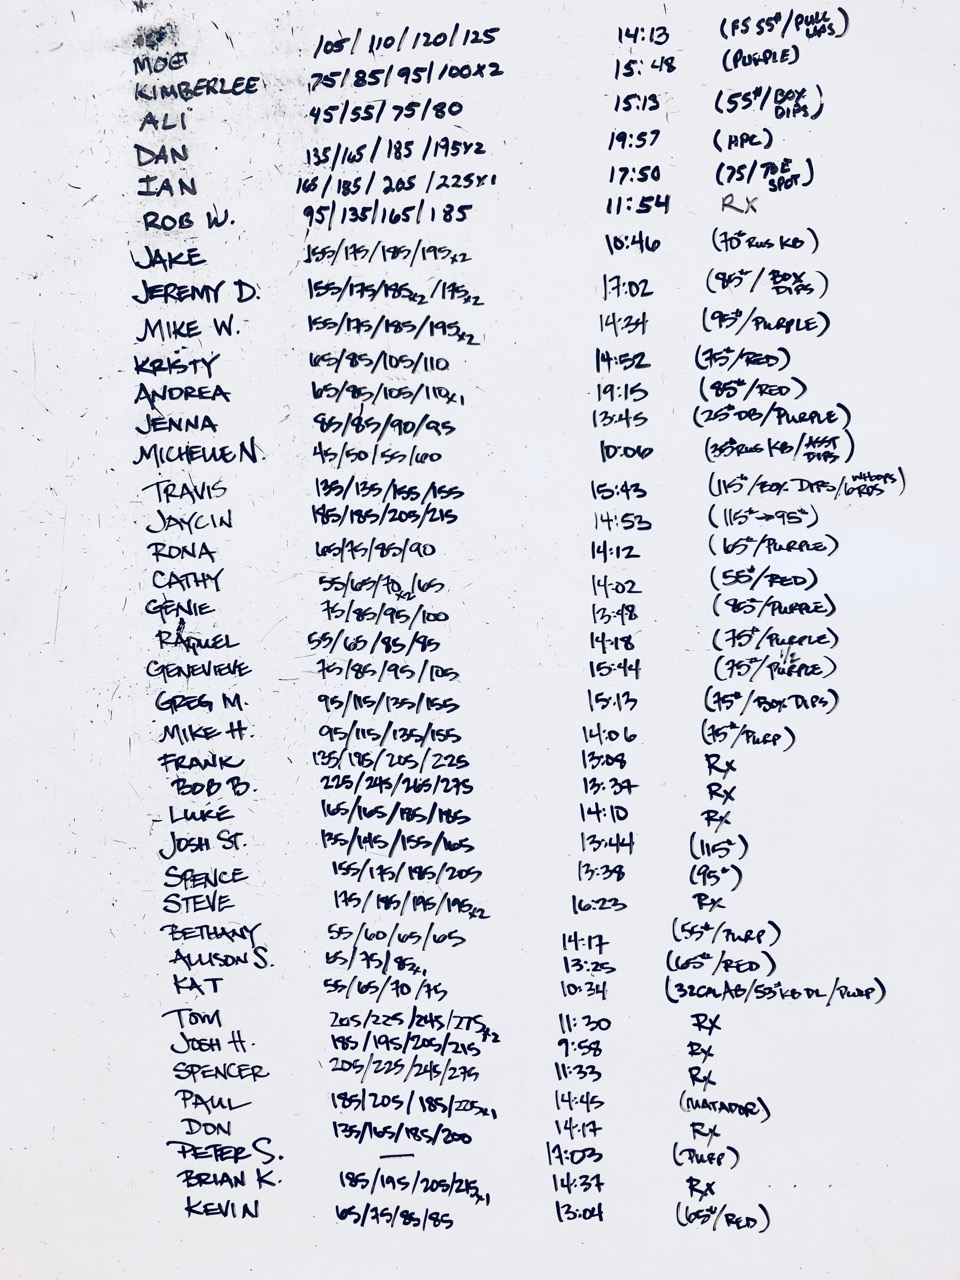 MOE 105/110/120/125 14:13 (FS 55#/PULL UPS)
KIMBERLEE 75/85/95/100x2 15:48 (PURPLE)
ALI 45/55/75/80 15:13 (55#/BOX DIPS)
DAN 135/165/185/195x2 19:57 (HPC)
IAN 165/185/205/225x1 17:50 (75/TOE SPOT)
ROB W. 95/135/165/185 11:54 RX
JAKE 155/175/185/195x2 10:46 (70# RUS KB)
JEREMY D. 155/175/185x2/175x2 17:02 (85#/BOX DIPS)
MIKE W. 155/175/185/195x2 14:34 (95#/PURPLE)
KRISTY 65/85/105/110 14:52 (75#/RED)
ANDREA 65/85/105/110x1 19:15 (85#/RED)
JENNA 85/85/90/95 13:45 (25# DB/PURPLE)
MICHELLE N. 45/50/55/60 10:06 (35# RUS KB/ASST DIPS)
TRAVIS 135/135/155/155 15:43 (115#/BOX DIPS/6RDS)
JAYCIN 185/185/205/215 14:53 (115#→95#)
RONA 65/75/85/90 14:12 (65#/PURPLE)
CATHY 55/65/70x2/65 14:02 (55#/RED)
GENIE 75/85/95/100 13:48 (85#/PURPLE)
RAQUEL 55/65/85/85 14:18 (75#/PURPLE)
GENEVIEVE 75/85/95/105 15:44 (75#/1/2 PURPLE)
GREG M. 95/115/135/155 15:13 (75#/BOX DIPS)
MIKE H. 95/115/135/155 14:06 (75#/PURP)
FRANK 135/185/205/225 13:08 RX
BOB B. 225/245/265/275 13:37 RX
LUKE 165/165/185/185 14:10 RX
JOSH ST. 135/145/155/165 13:44 (115#)
SPENCE 155/175/185/205 13:38 (95#)
STEVE 175/185/195/195x2 16:23 RX
BETHANY 55/60/65/65 14:17 (55#/PURP)
ALLISON S. 65/75/85x1 13:25 (65#/RED)
KAT 55/65/70/75 10:34 (32CAL AB/53# KB DL/PURP)
TOM 205/225/245/275x2 11:30 RX
JOSH H. 185/195/205/215 9:58 RX
SPENCER 205/225/245/275 11:33 RX
PAUL 185/205/185/225x1 14:45 (MATADOR)
DON 135/165/185/200 14:17 RX
PETER S. — 17:03 (PURP)
BRIAN K. 185/195/205/215x1 14:37 RX
KEVIN 65/75/85/85 13:04 (65#/RED)